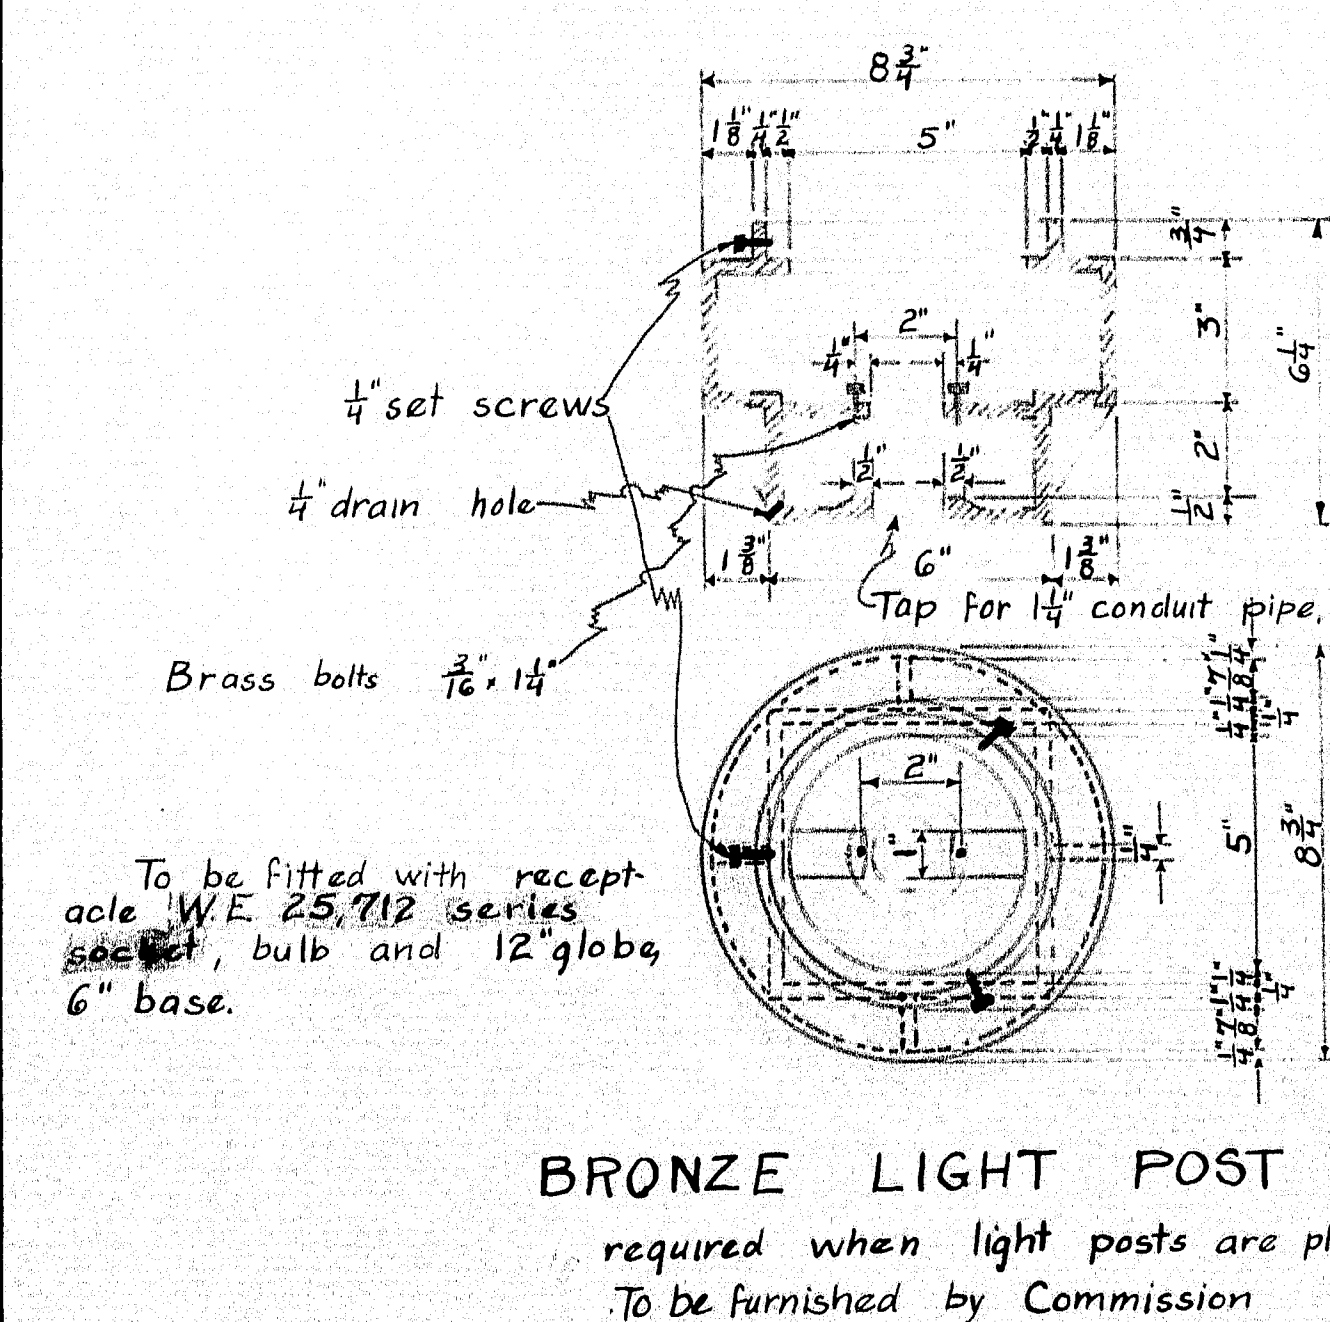 8 3/4"
1 1/8" 1/4" 1/2" 5" 1/2" 1/4" 1 1/8"
3/4"
2"
3"
1/4" 1/4"
6 1/4"
1/4" set screws
2"
1/2" 1/2"
1/4" drain hole
1/2"
1 3/8" 6" 1 3/8"
Tap for 1 1/4" conduit pipe.
Brass bolts 3/16" x 1 1/4"
1/4" 1/4" 7/8" 1/4"
1/4"
2"
1"
1/4"
5"
8 3/4"
To be fitted with recept-
acle W.E 25,712 series
socket, bulb and 12" globe,
6" base.
1/4" 7/8" 1/4" 1/4"
1/4"
BRONZE LIGHT POST
required when light posts are pl
To be furnished by Commission